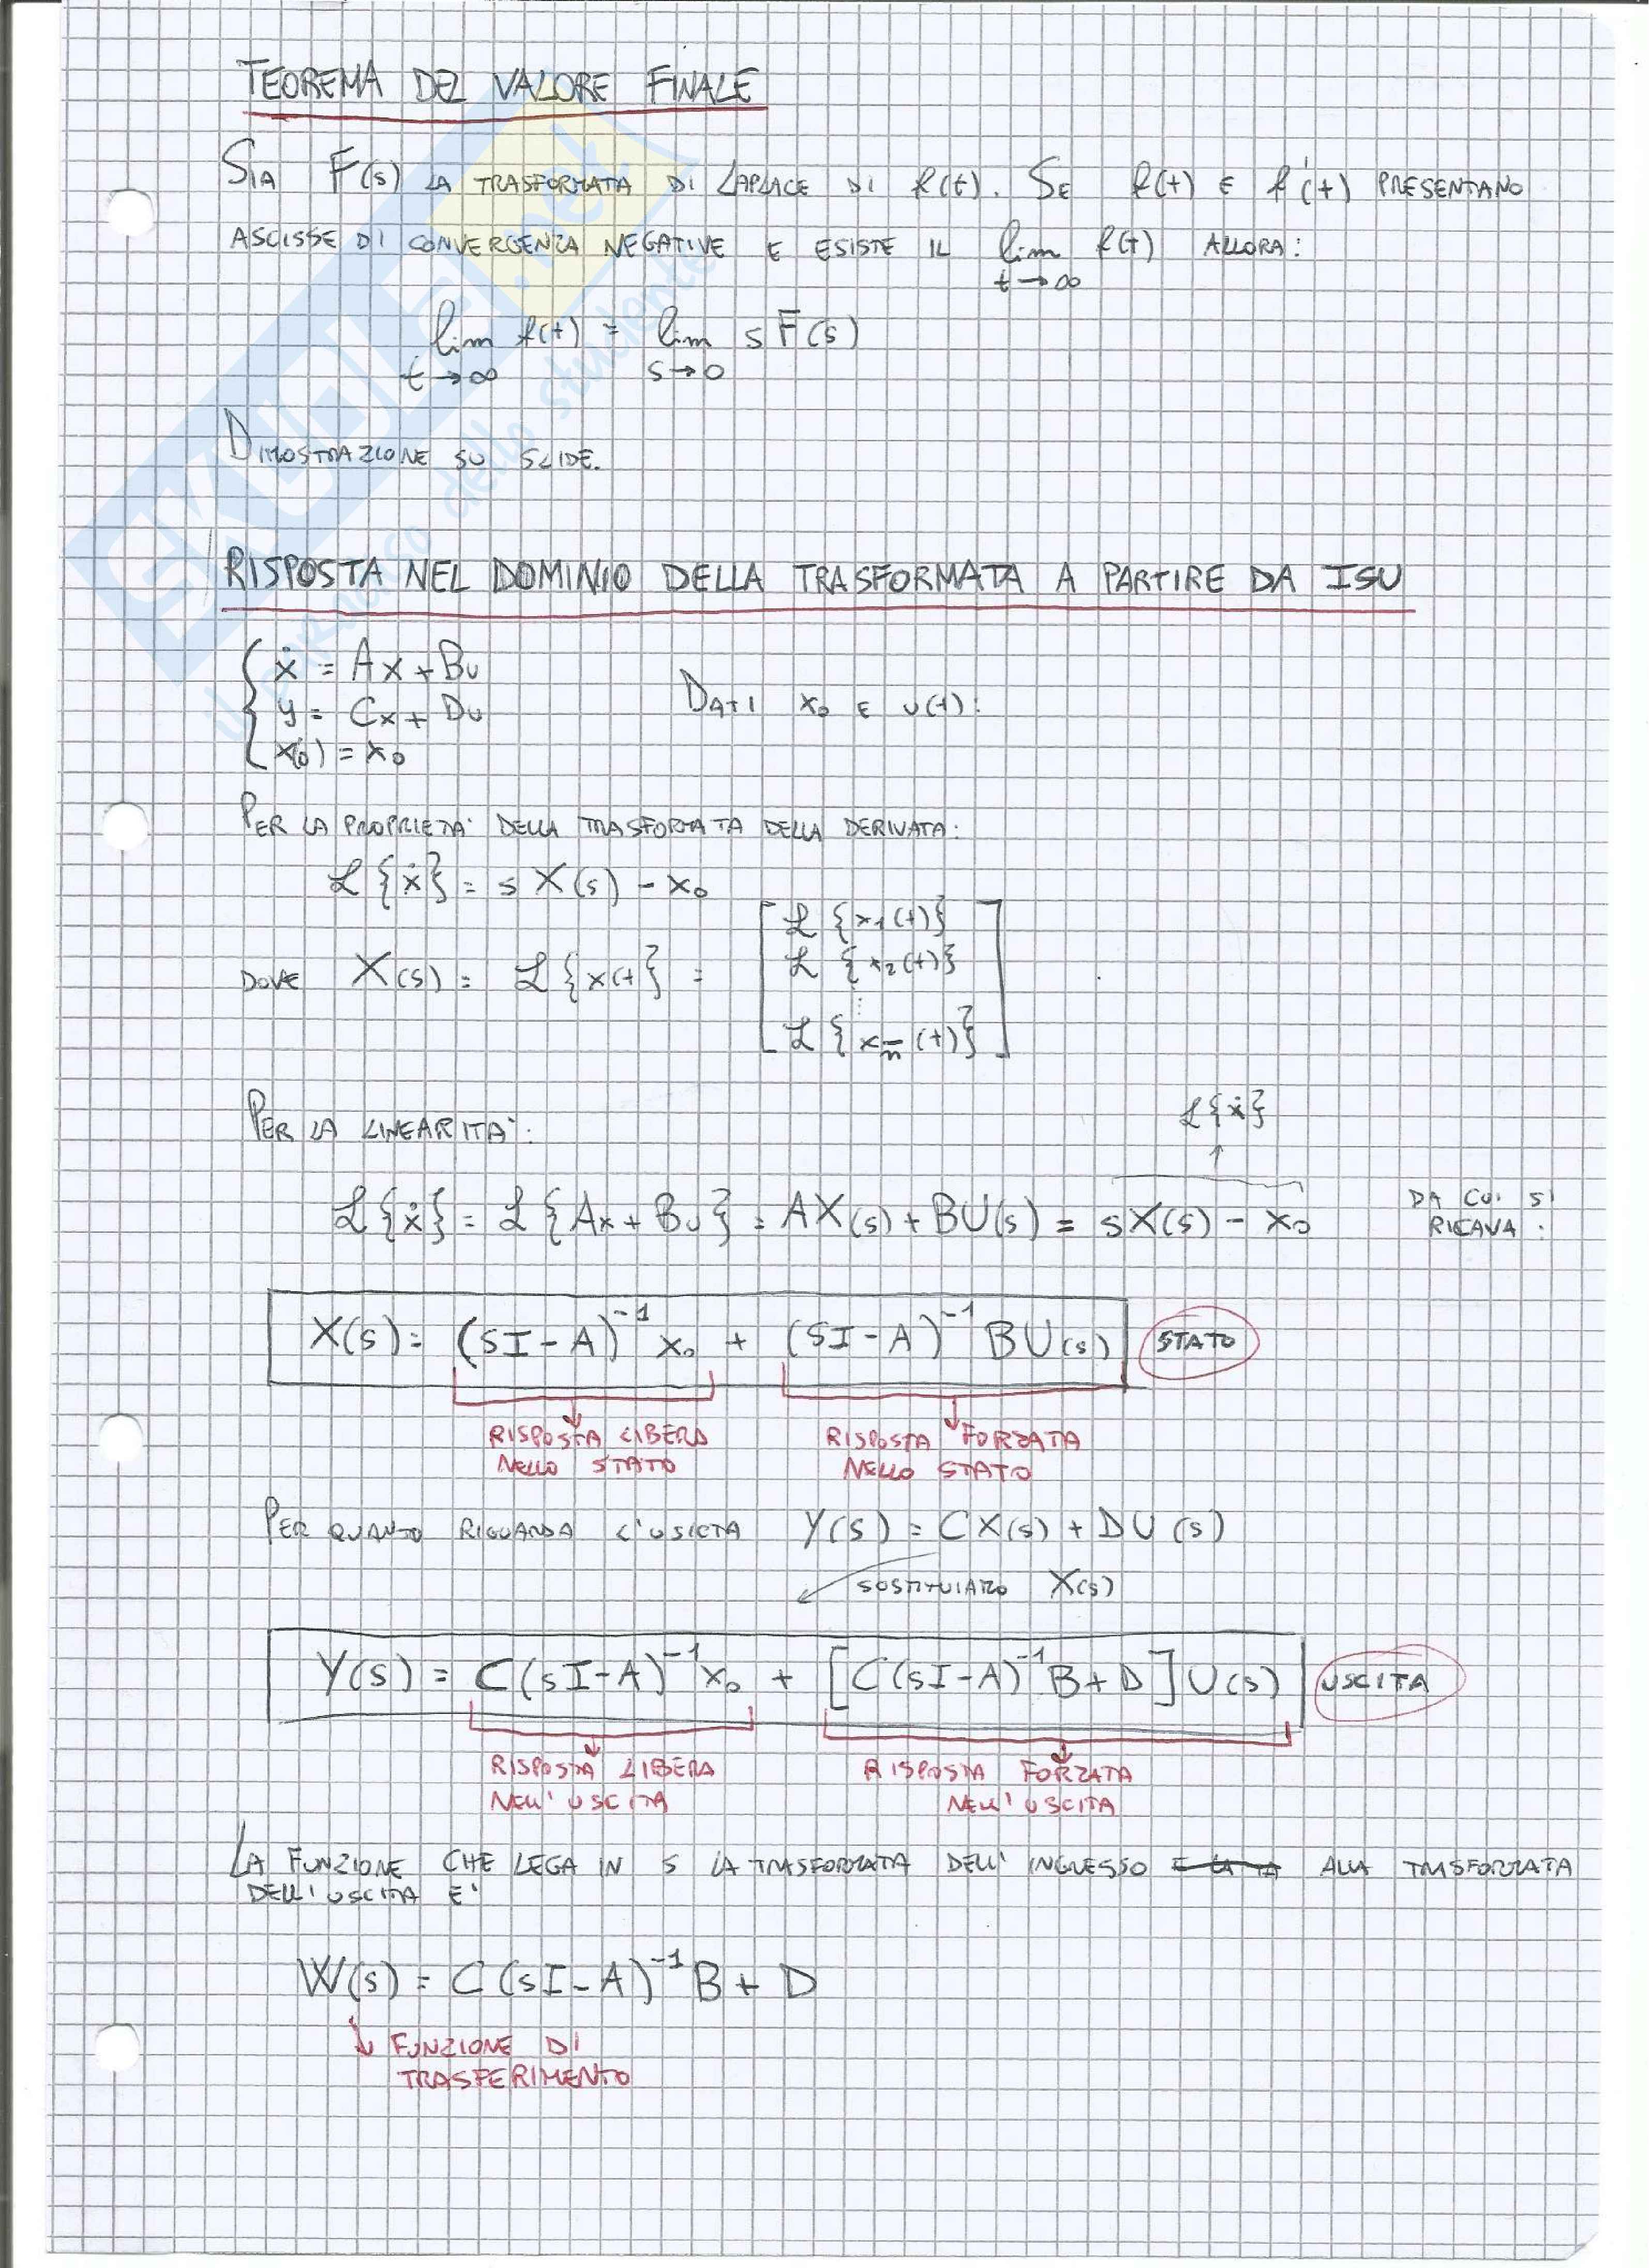 TEOREMA DEL VALORE FINALE
SIA F(s) LA TRASFORMATA DI LAPLACE DI f(t). SE f(t) E f'(t) PRESENTANO
ASCISSE DI CONVERGENZA NEGATIVE E ESISTE IL lim f(t) ALLORA:
t→∞
lim f(t) = lim s F(s)
t→∞ s→0
DIMOSTRAZIONE SU SLIDE.
RISPOSTA NEL DOMINIO DELLA TRASFORMATA A PARTIRE DA ISU
{ ẋ = Ax + Bu
y = Cx + Du
x(0) = x₀
DATI x₀ E u(t):
PER LA PROPRIETA' DELLA TRASFORMATA DELLA DERIVATA:
ℒ{ẋ} = s X(s) - x₀
DOVE X(s) = ℒ{x(t} = [ ℒ{x₁(t)}
ℒ{x₂(t)}
⋮
ℒ{xₙ(t)} ]
PER LA LINEARITA':
ℒ{ẋ}
↑
ℒ{ẋ} = ℒ{Ax + Bu} = AX(s) + BU(s) = sX(s) - x₀ DA CUI SI
RICAVA :
X(s) = (sI-A)⁻¹ x₀ + (sI-A)⁻¹ BU(s) STATO
RISPOSTA LIBERA RISPOSTA FORZATA
NELLO STATO NELLO STATO
PER QUANTO RIGUARDA L'USCITA Y(s) = CX(s) + DU(s)
SOSTITUIAMO X(s)
Y(s) = C(sI-A)⁻¹x₀ + [C(sI-A)⁻¹B+D]U(s) USCITA
RISPOSTA LIBERA RISPOSTA FORZATA
NELL'USCITA NELL'USCITA
LA FUNZIONE CHE LEGA IN S LA TRASFORMATA DELL'INGRESSO ALLA TRASFORMATA
DELL'USCITA E'
W(s) = C(sI-A)⁻¹B + D
↳ FUNZIONE DI
TRASFERIMENTO
SKUOLA.net